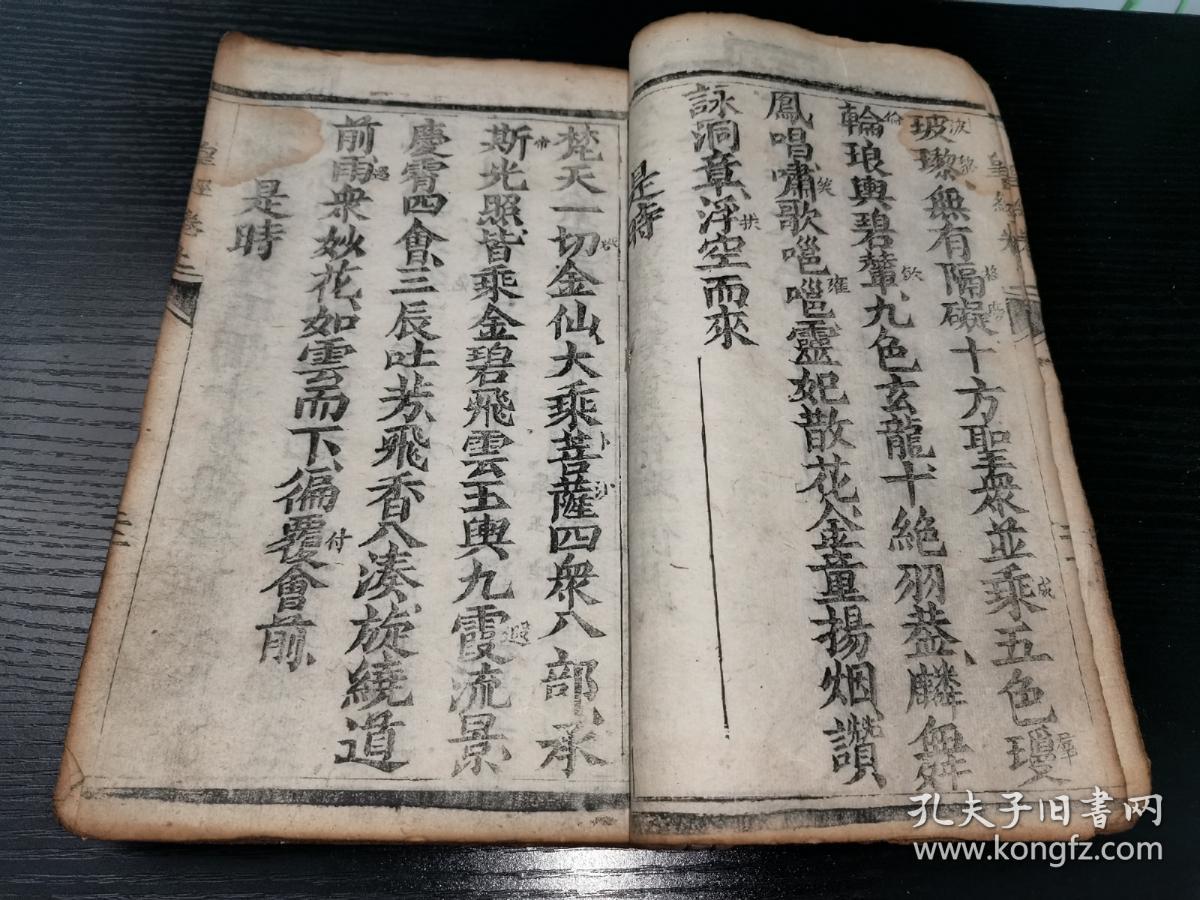 玻瓈無有隔礙十方聖衆並乘五色瓊
輪琅輿碧輦九色玄龍十絶羽蓋麟舞
鳳唱嘯歌嗈嗈靈妃散花金童揚烟讚
詠洞章浮空而來
是時
梵天一切金仙大乘菩薩四衆八部承
斯光照皆乘金碧飛雲玉輿九霞流景
慶霄四會三辰吐芳飛香八湊旋繞道
前雨衆妙花如雲而下徧覆會前
是時
皇經卷二
孔夫子旧书网
www.kongfz.com